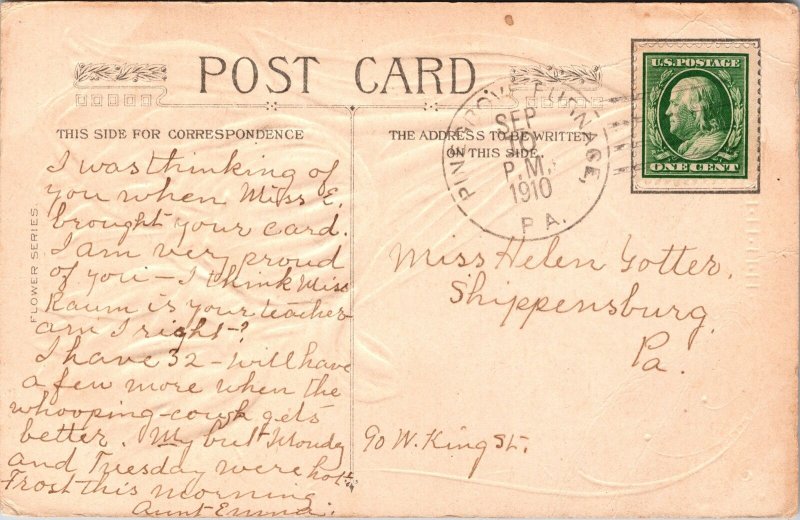 POST CARD
THIS SIDE FOR CORRESPONDENCE
THE ADDRESS TO BE WRITTEN
ON THIS SIDE.
FLOWER SERIES.
I was thinking of
you when Miss E.
brought your card.
I am very proud
of you — I think Miss
Raum is your teacher
am I right—?
I have 32 — will have
a few more when the
whooping-cough gets
better. My but Monday
and Tuesday were hot.
Frost this morning
Aunt Emma.
PINE GROVE FURNACE,
SEP
P.M.
1910
PA.
U.S. POSTAGE
ONE CENT
Miss Helen Gotter.
Shippensburg,
Pa.
90 W. King St.